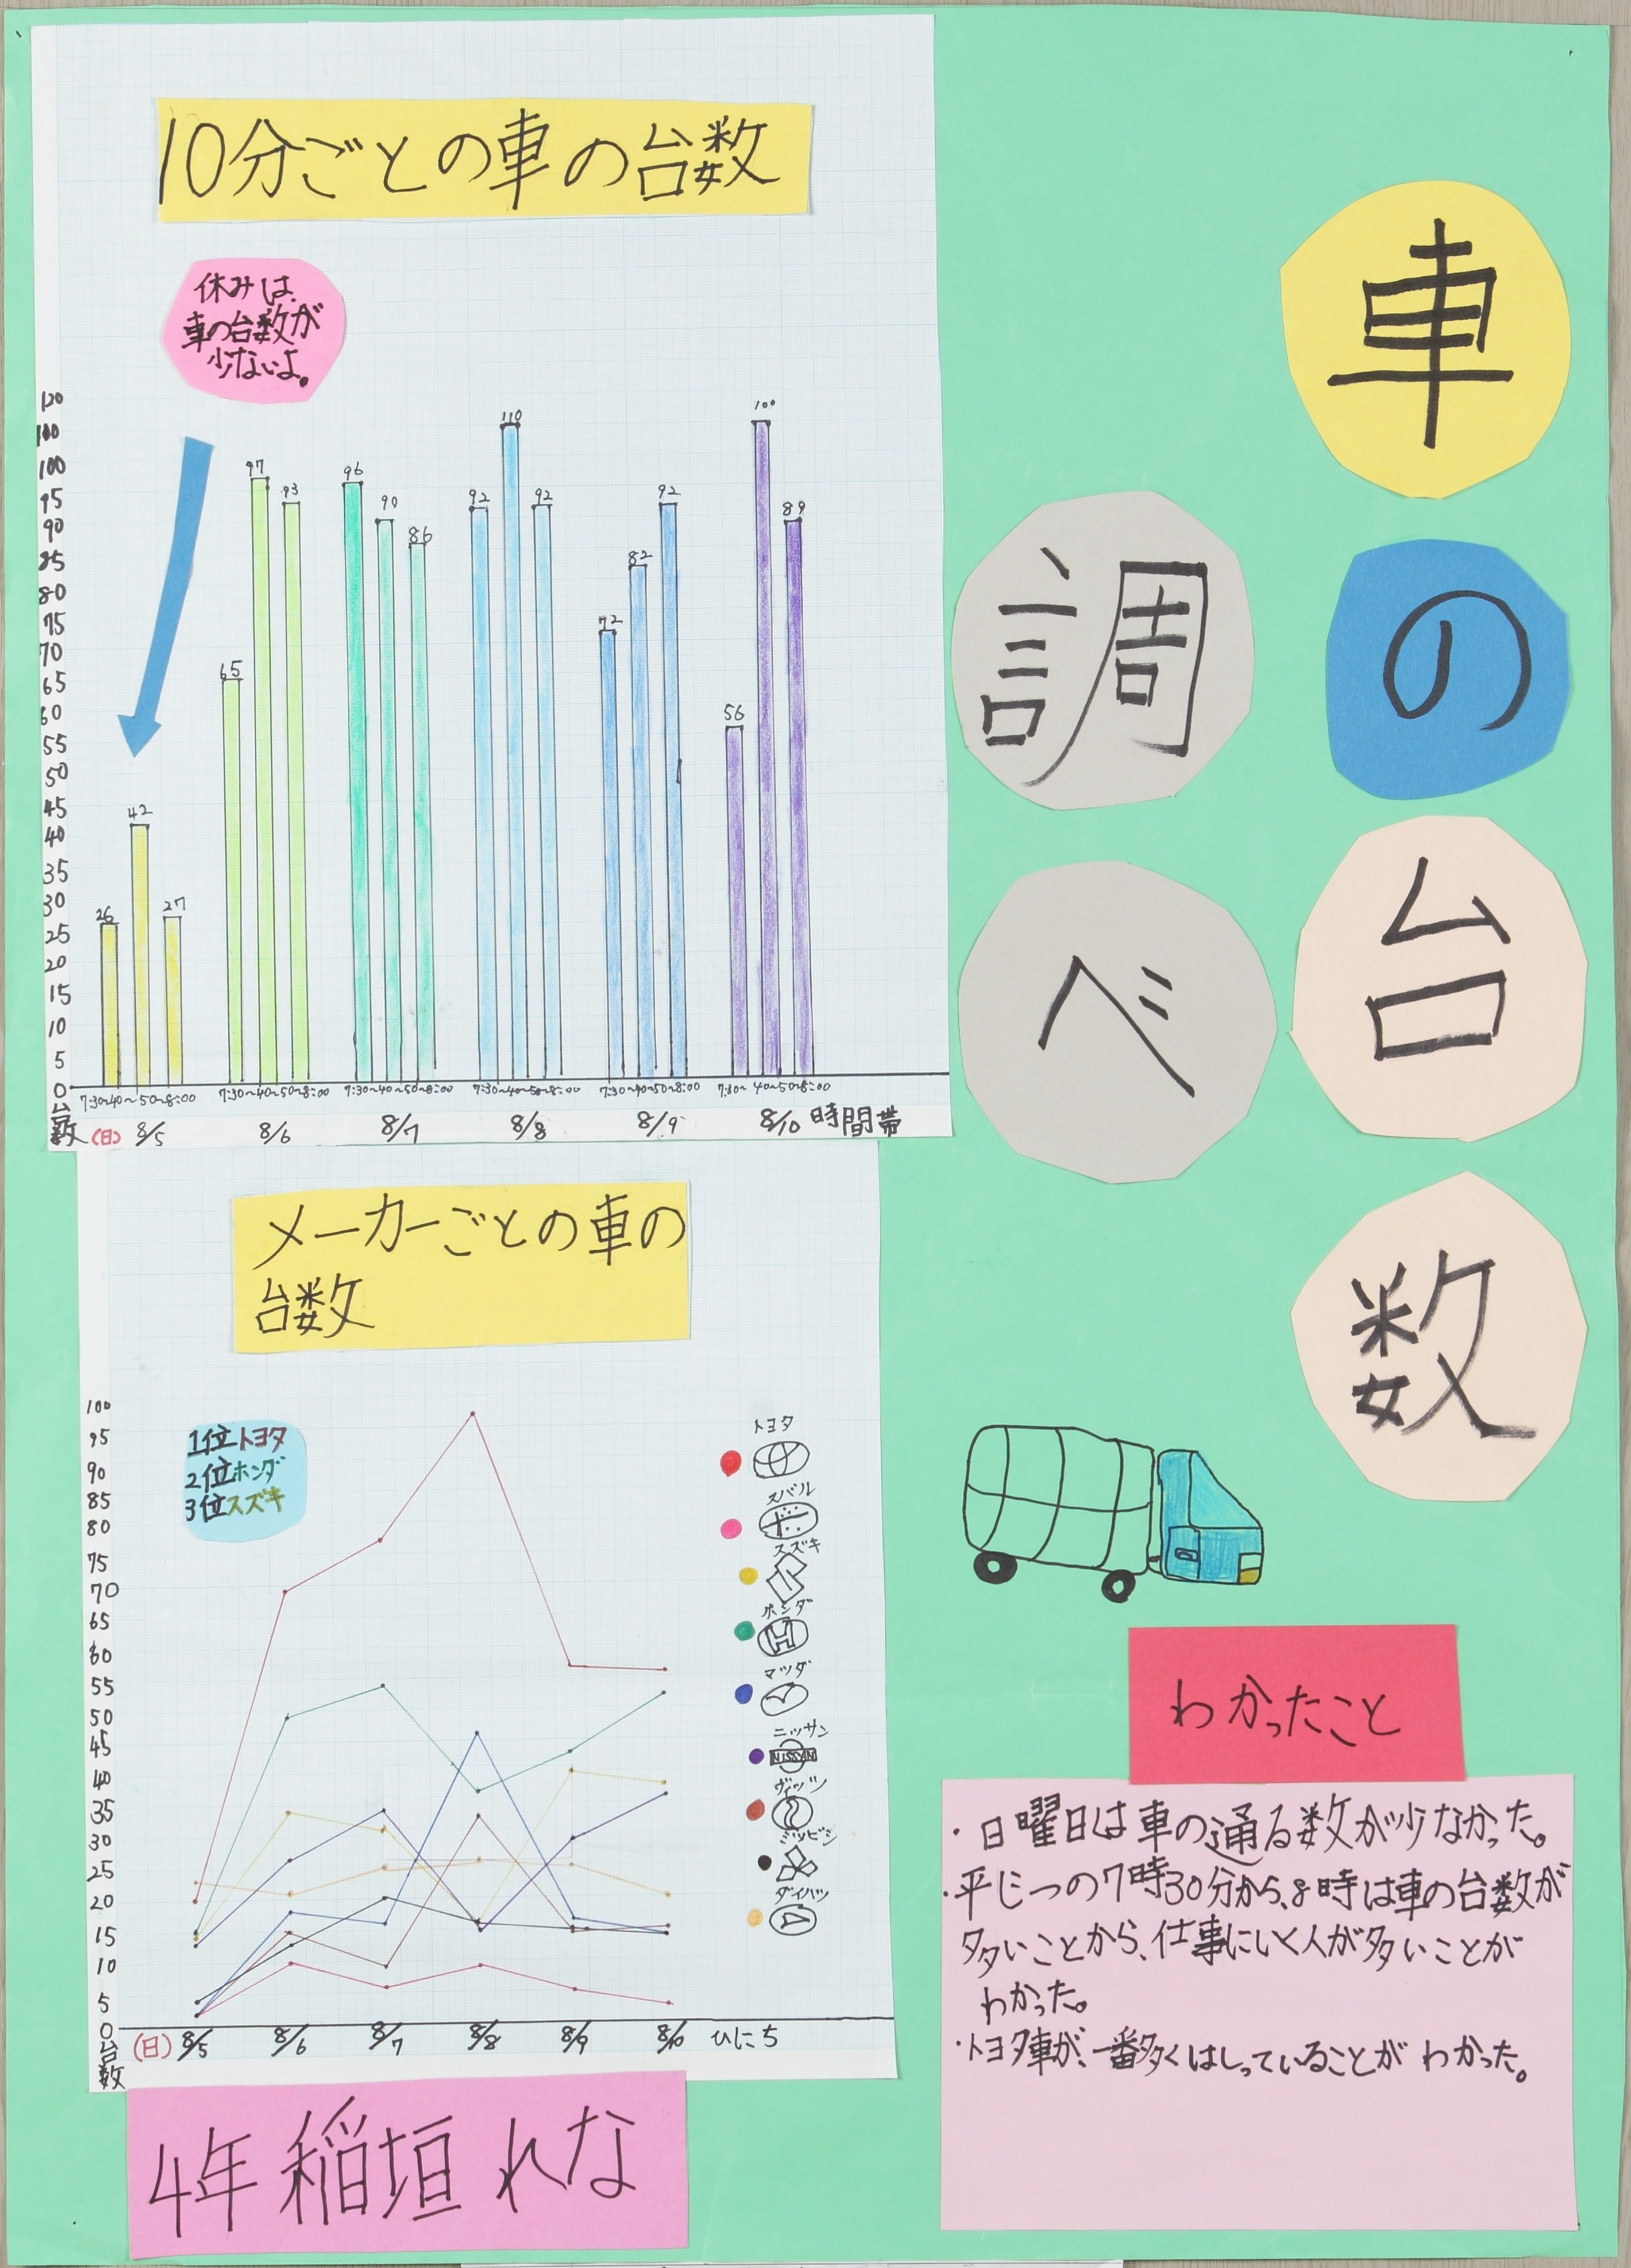 車の台数
調べ
10分ごとの車の台数
休みは
車の台数が
少ないよ。
120
100
100
95
90
85
80
75
70
65
60
55
50
45
40
35
30
25
20
15
10
5
0
台数
26 42 27
65 97 93
96 90 86
92 110 92
72 82 92
56 100 89
7:30~40~50~8:00 7:30~40~50~8:00 7:30~40~50~8:00 7:30~40~50~8:00 7:30~40~50~8:00 7:30~40~50~8:00
(日) 8/5 8/6 8/7 8/8 8/9 8/10 時間帯
メーカーごとの車の
台数
1位トヨタ
2位ホンダ
3位スズキ
100
95
90
85
80
75
70
65
60
55
50
45
40
35
30
25
20
15
10
5
0
台数
(日) 8/5 8/6 8/7 8/8 8/9 8/10 ひにち
トヨタ
スバル
スズキ
ホンダ
マツダ
ニッサン
NISSAN
ヴィッツ
ミツビシ
ダイハツ
わかったこと
・日曜日は車の通る数が少なかった。
・平じつの7時30分から、8時は車の台数が
多いことから、仕事にいく人が多いことが
わかった。
・トヨタ車が、一番多くはしっていることがわかった。
4年 稲垣 れな